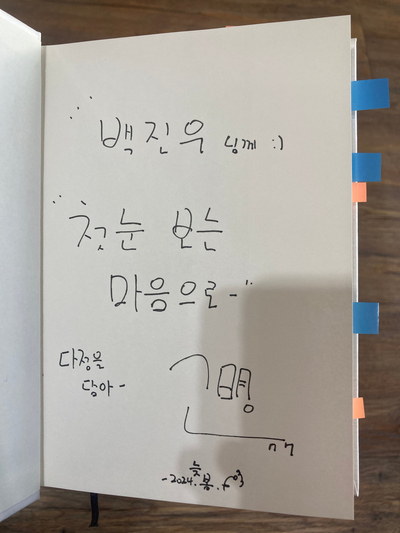 백진우 님께 :)
첫눈 보는
마음으로-
다정을
담아-
늦
-2024. 봄.